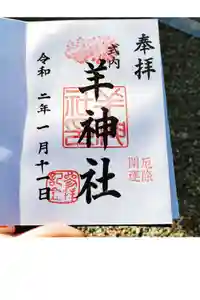 奉拝
式内
羊神社
厄除
開運
令和二年一月十一日